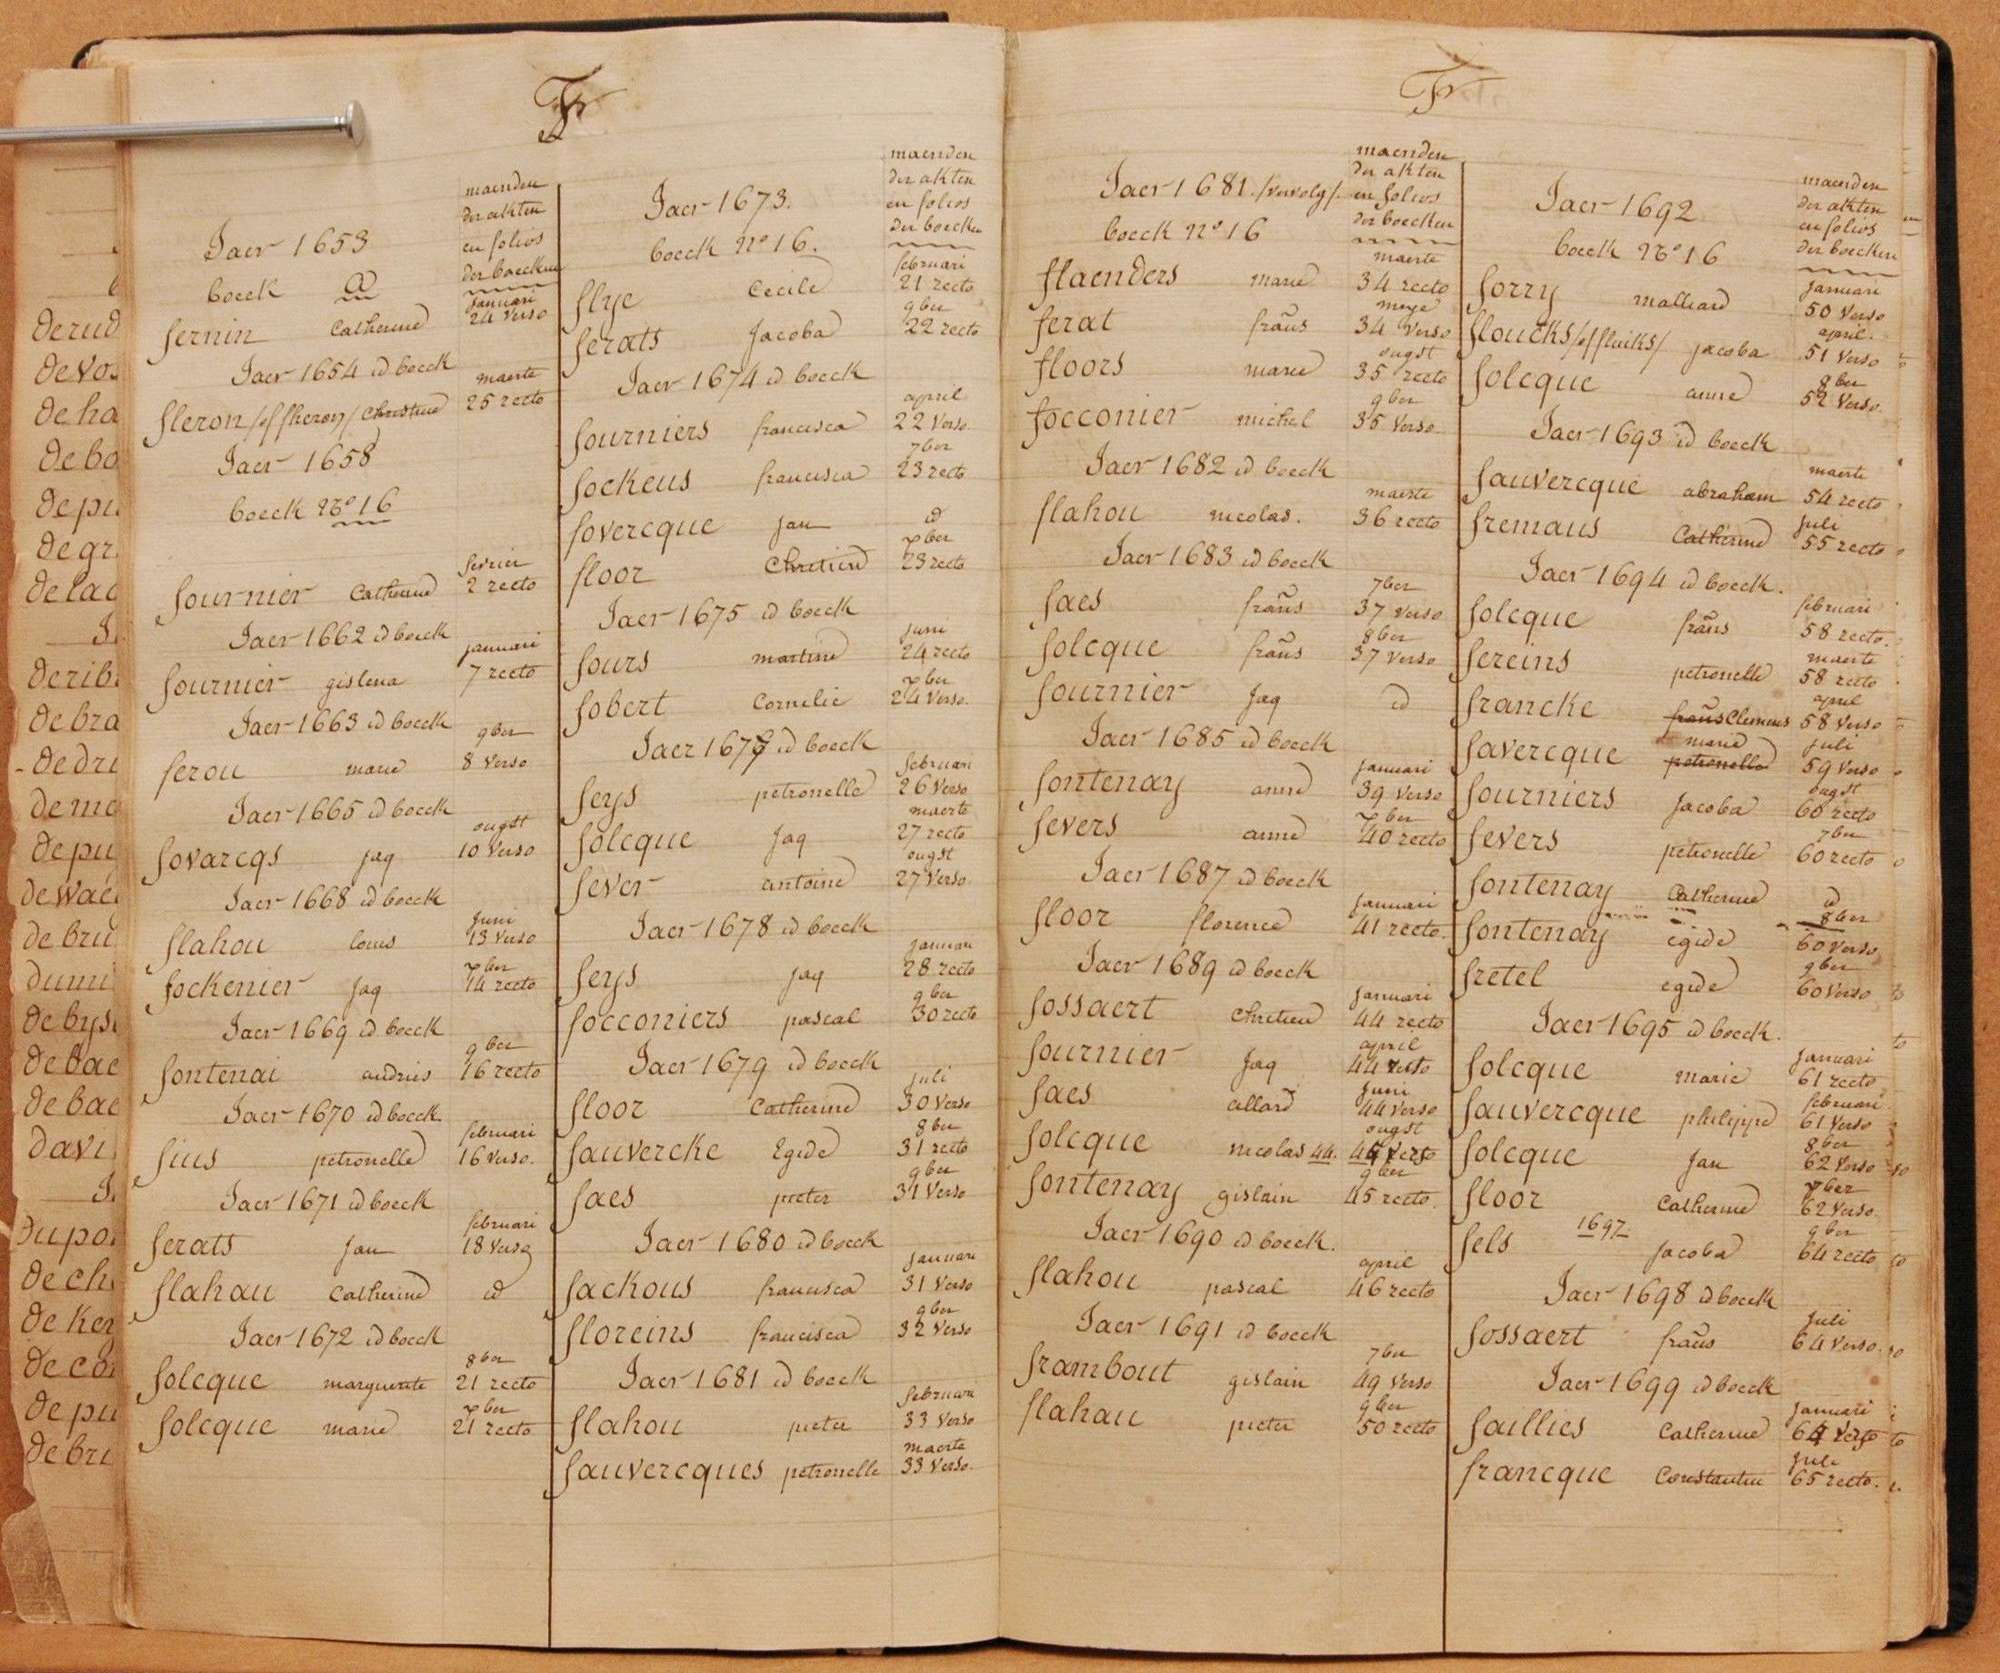 F
maenden
der akten
en folios
der boecken
Jaer 1653
boeck a
januari
fernin Catherine 24 verso
Jaer 1654 id boeck
maerte
fleron /of fheron/ Christine 25 recto
Jaer 1658
boeck No 16
fevrier
fournier Catherine 2 recto
Jaer 1662 id boeck
januari
fournier gislena 7 recto
Jaer 1663 id boeck
9ber
ferou marie 8 verso
Jaer 1665 id boeck
ougst
fovarcqs jaq 10 verso
Jaer 1668 id boeck
juni
flahou louis 13 verso
xber
fockenier jaq 14 recto
Jaer 1669 id boeck
9ber
fontenai andries 16 recto
Jaer 1670 id boeck
februari
fius petronelle 16 verso.
Jaer 1671 id boeck
februari
ferats jan 18 verso
flahau Catherine id
Jaer 1672 id boeck
8ber
folcque marguerite 21 recto
xber
folcque marie 21 recto
maenden
der akten
en folios
der boecken
Jaer 1673.
boeck No 16.
februari
flye Cecile 21 recto
9ber
ferats Jacoba 22 recto
Jaer 1674 id boeck
april
fourniers francisca 22 verso
7ber
fockeus francisca 23 recto
fovercque jan id
xber
floor Chretien 23 recto
Jaer 1675 id boeck
juni
fours martine 24 recto
xber
fobert Cornelie 24 verso.
Jaer 1677 id boeck
februari
feys petronelle 26 verso
maerte
folcque jaq 27 recto
ougst
fever antoine 27 verso
Jaer 1678 id boeck
januari
feys jaq 28 recto
9ber
focconiers pascal 30 recto
Jaer 1679 id boeck
juli
floor Catherine 30 verso
8ber
fauvercke Egide 31 recto
9ber
faes pieter 31 verso
Jaer 1680 id boeck
januari
fackous francisca 31 verso
9ber
floreins francisca 32 verso
Jaer 1681 id boeck
februari
flahou pieter 33 verso
maerte
fauvercques petronelle 33 verso.
F
maenden
der akten
en folios
der boecken
Jaer 1681. /vervolg/.
boeck No 16
maerte
flaenders marie 34 recto
meye
ferat frans 34 verso
ougst
floors marie 35 recto
9ber
focconier michel 35 verso
Jaer 1682 id boeck
maerte
flahou nicolas. 36 recto
Jaer 1683 id boeck
7ber
faes frans 37 verso
8ber
folcque frans 37 verso
fournier jaq id
Jaer 1685 id boeck
januari
fontenay anne 39 verso
xber
fevers anne 40 recto
Jaer 1687 id boeck
januari
floor florence 41 recto.
Jaer 1689 id boeck
januari
fossaert Chretien 44 recto
april
fournier jaq 44
juni
faes allard 44 verso
ougst
folcque nicolas 44. verso
9ber
fontenay gislain 45 recto.
Jaer 1690 id boeck.
april
flahou pascal 46 recto
Jaer 1691 id boeck
7ber
frambout gislain 49 verso
9ber
flahau pieter 50 recto
maenden
der akten
en folios
der boecken
Jaer 1692
boeck No 16
januari
forry malliard 50 verso
april.
floucks /of fluiks/ jacoba 51 verso
8ber
folcque anne 52 verso.
Jaer 1693 id boeck
maerte
fauvercque abraham 54 recto
juli
fremaus Catherine 55 recto
Jaer 1694 id boeck.
februari
folcque frans 58 recto.
maerte
fereins petronelle 58 recto
april
francke frans Clemens 58 verso
marie juli
favercque petronelle 59 verso
ougst
fourniers Jacoba 60 recto
7ber
fevers petronelle 60 recto
fontenay Catherine id
8ber
fontenay egide 60 verso
9ber
fretel egide 60 verso
Jaer 1695 id boeck.
januari
folcque marie 61 recto
februari
fauvercque philippe 61 verso
8ber
folcque jan 62 verso
xber
floor Catherine 62 verso
1697 9ber
fels jacoba 64 recto
Jaer 1698 id boeck
juli
fossaert frans 64 verso.
Jaer 1699 id boeck
januari
faillies Catherine 64 verso
juli
francque Constantin 65 recto.